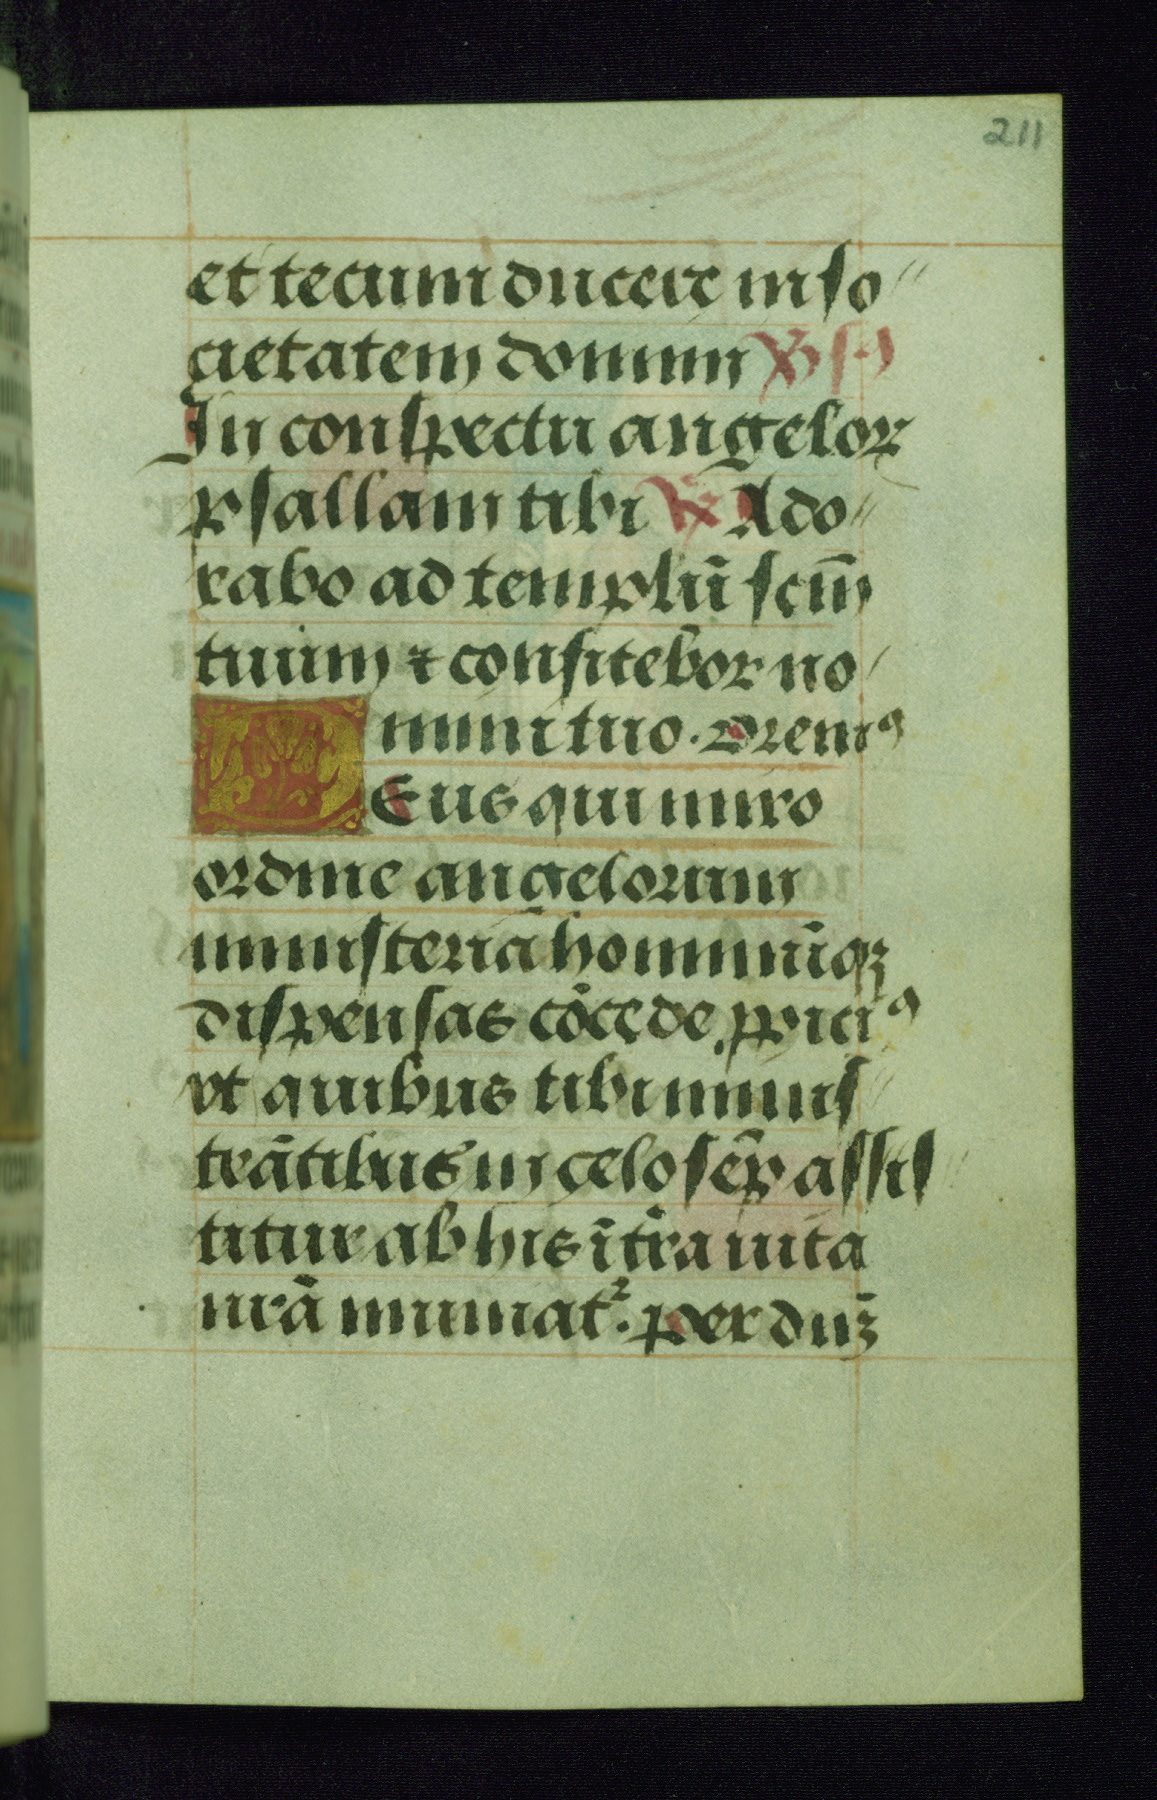 211
et tecum ducere in so
cietatem domini v̄sꝰ
In conspectu angeloꝝ
psallam tibi ℟ Ado
rabo ad templū scm̄
tuum ⁊ confitebor no
mini tuo. Oremꝰ
Deus qui miro
ordine angelorum
ministeria hominūqꝫ
dispensas cōcede ꝓpiciꝰ
vt a quibus tibi minis
trātibus in celo semꝑ assis
titur ab his ī terra uita
nr̄a muniatᷣ. per dūꝫ